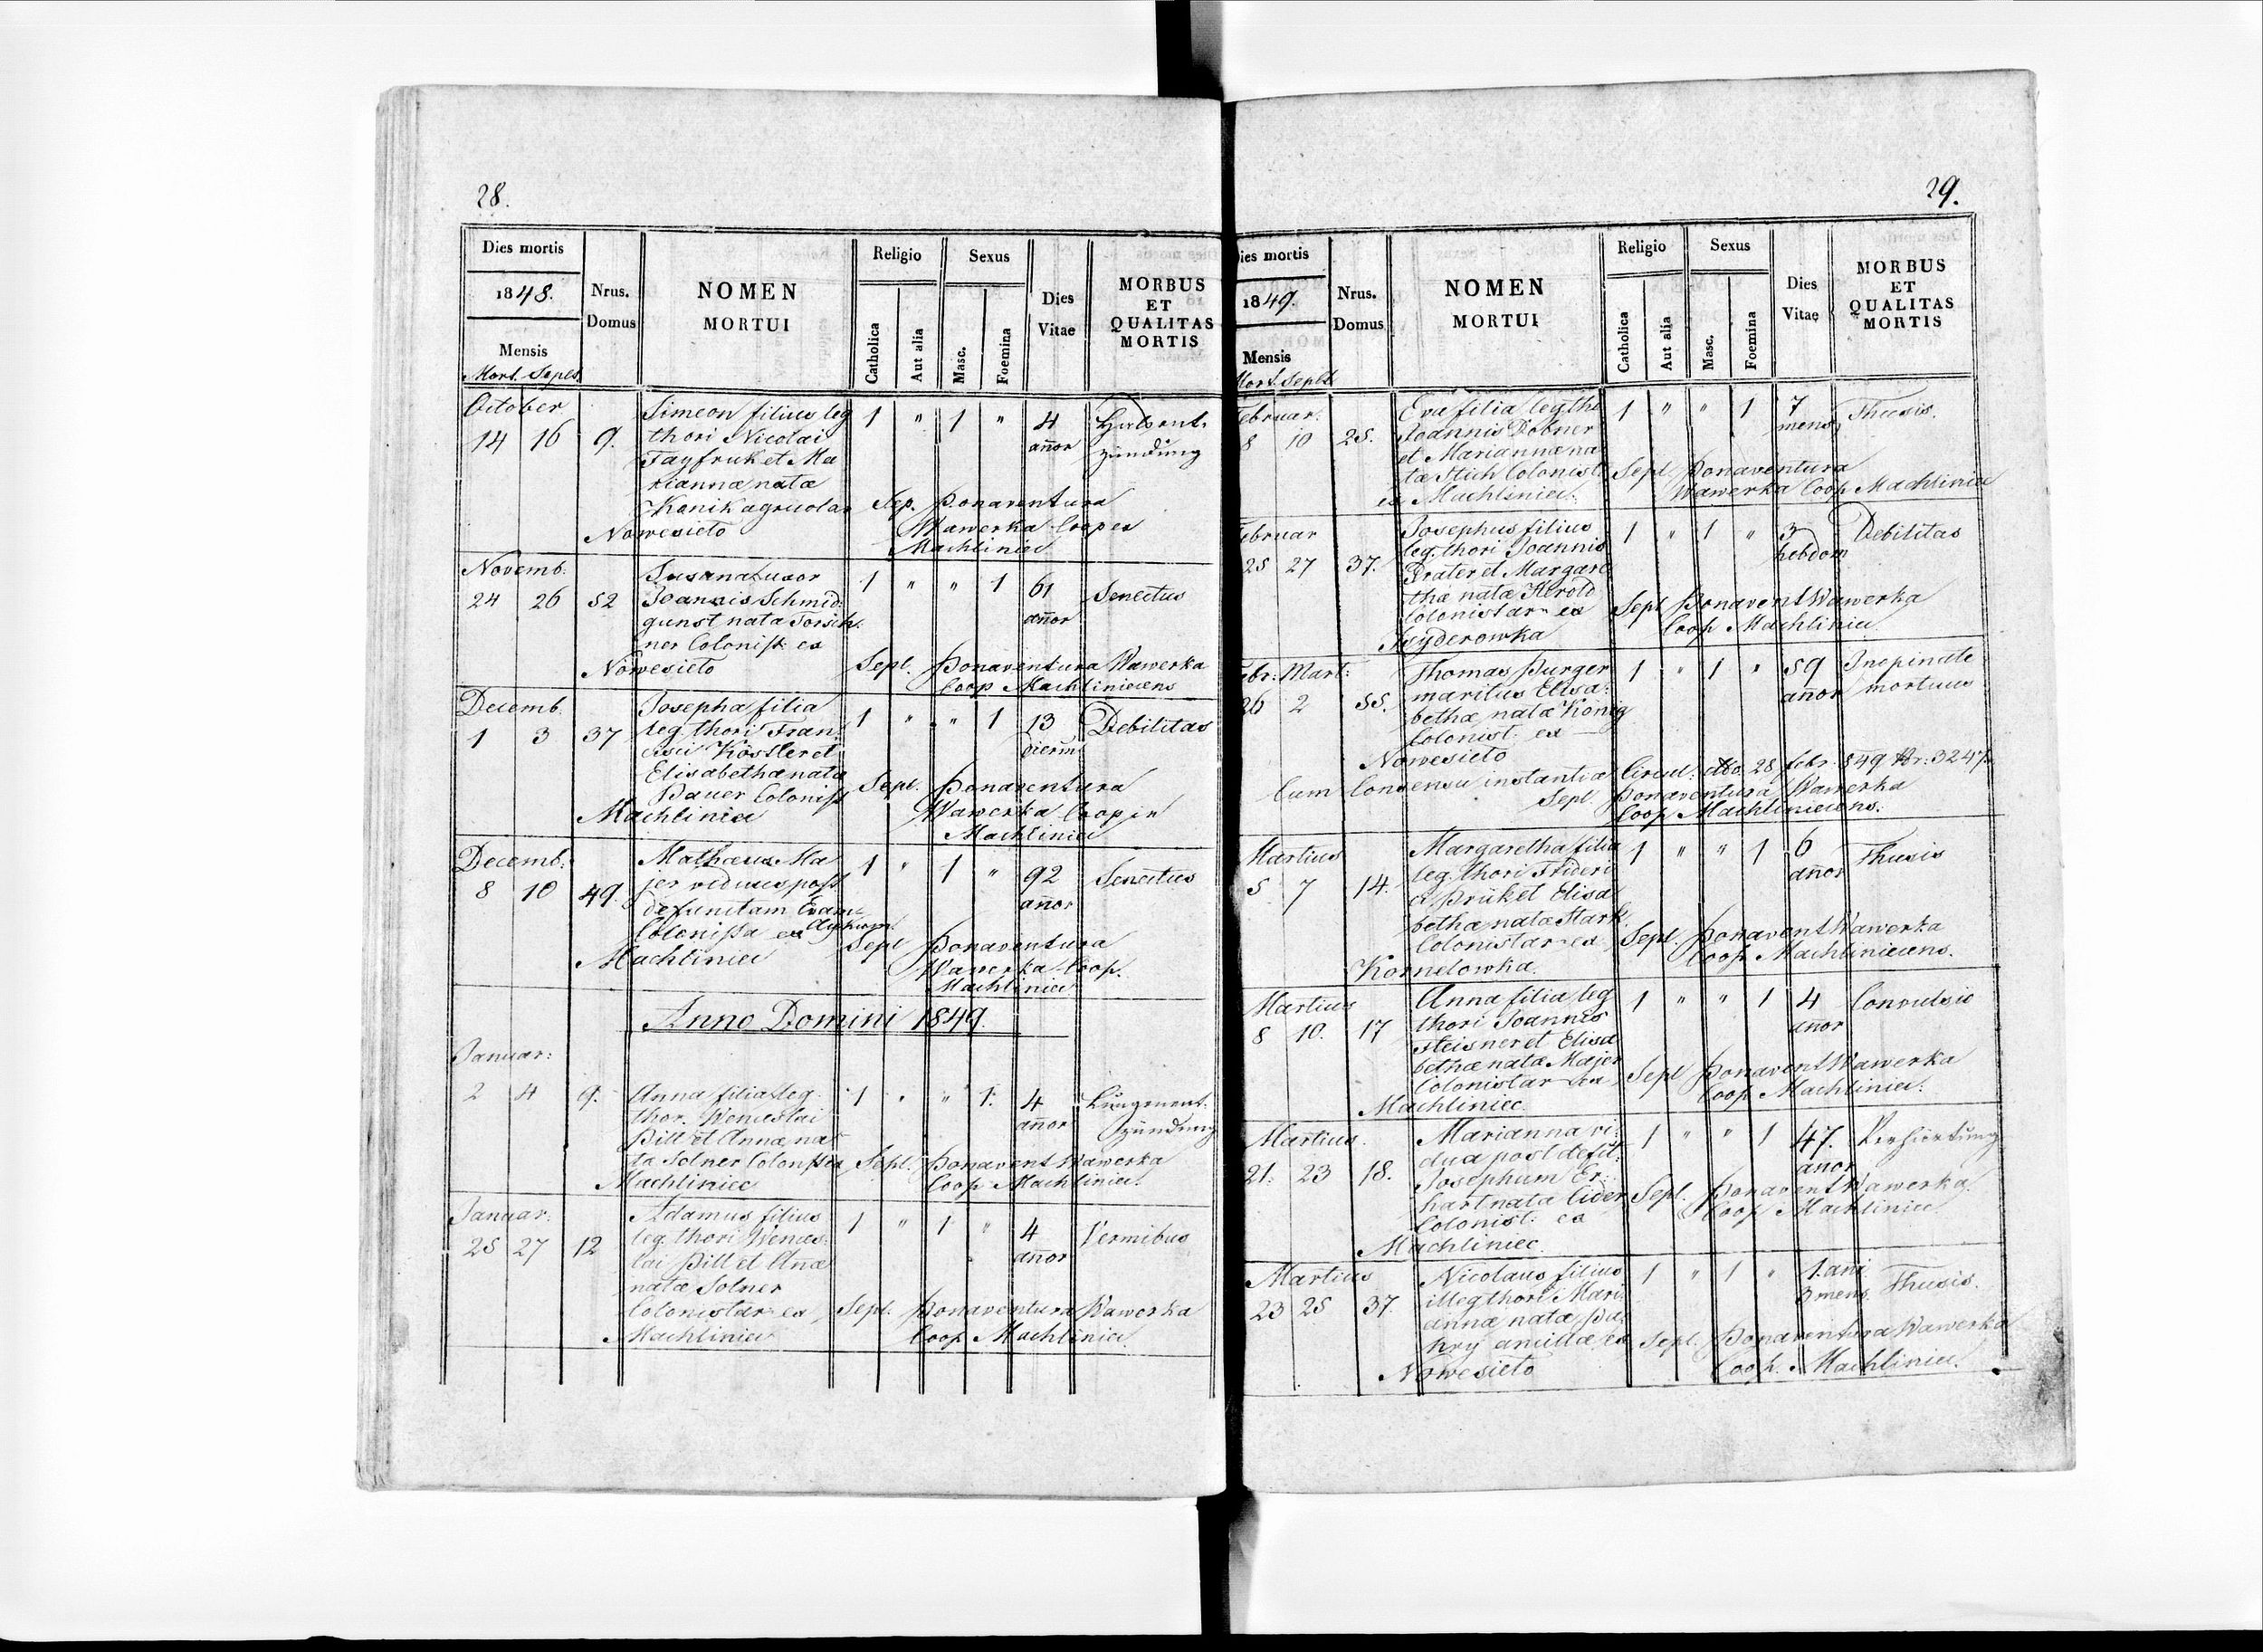 28.
Dies mortis
1848.
Mensis
Mort. Sepel.
Nrus.
Domus
NOMEN
MORTUI
Religio
Catholica
Aut alia
Sexus
Masc.
Foemina
Dies
Vitae
MORBUS
ET
QUALITAS
MORTIS
October
14 16 9. Simeon filius leg 1 " 1 " 4 Halsent-
thori Nicolai añor zündung
Tayfruk et Ma
riannæ natæ
Kanik agricolar Sep. Bonaventura
Nowesieto Wawerka Coop ex
Machliniec
Novemb:
24 26 52 Susanna uxor 1 " " 1 61 Senectus
Joannis Schmid: añor
gunst nata Torsch.
ner Colonist: ex
Nowesieto Sepl. Bonaventura Wawerka
Coop Machlinieciens
Decemb.
1 3 37 Josepha filia 1 " " 1 13 Debilitas
leg thori Fran: dierum
cisci Köstler et
Elisabethæ nata
Bauer Colonist Sepl. Bonaventura
Machliniec Wawerka Coop in
Machliniec
Decemb:
8 10 49. Mathæus Ma 1 " 1 " 92 Senectus
jer viduus post añor
defunctam Evam
Colonissa ex
Machliniec Sepl Bonaventura
Wawerka Coop.
Machliniec
Anno Domini 1849.
Januar:
2 4 9. Anna filia leg 1 " " 1. 4 Lungenent-
thor. Wenceslai añor zündung
Bill et Annæ na
ta Solner Colonistar Sepl. Bonavent Wawerka
Machliniec Coop Machliniec.
Januar:
25 27 12 Adamus filius 1 " 1 " 4 Vermibus
leg. thori Wences: añor
lai Bill et Anæ
natæ Solner
Colonistar ex Sepl. Bonaventura Wawerka
Machliniec Coop Machliniec.
29.
Dies mortis
1849.
Mensis
Mort. Sepelt
Nrus.
Domus
NOMEN
MORTUI
Religio
Catholica
Aut alia
Sexus
Masc.
Foemina
Dies
Vitae
MORBUS
ET
QUALITAS
MORTIS
Februar:
8 10 25. Eva filia leg th 1 " " 1 7 Thusis.
Joannis Dobner mens
et Mariannæ na
tæ Stich Colonist Sepl Bonaventura
ex Machliniec. Wawerka Coop Machliniec
Februar
25 27 37. Josephus filius 1 " 1 " 3 Debilitas
leg. thori Joannis hebdom
Prater et Margare
thæ natæ Herold
Colonistar ex Sepl Bonavent Wawerka
Izyderowka Coop Machliniec
Febr: Mart:
26 2 55. Thomas Burger 1 " 1 " 59 Inopinate
maritus Elisa: añor mortuus
bethæ natæ König
Colonist: ex
Nowesieto
Cum Consensu instantia Circul: ddo. 28 febr. 849 Nr: 3247.
Sepl Bonaventura Wawerka
Coop Machlinieciens:
Martius
5 7 14. Margaretha filia 1 " " 1 6 Thusis
leg. thori Frideri añor
ci Brük et Elisa
bethæ natæ Stark
Colonistar ex Sepl. Bonavent Wawerka
Kornelowka. Coop Machlinieciens.
Martius
8 10. 17 Anna filia leg 1 " " 1 4 Convulsio
thori Joannis añor
Fleisner et Elisa
bethæ nata Majer
Colonistar ex Sepl Bonavent Wawerka
Machliniec. Coop Machliniec.
Martius.
21. 23 18. Marianna vi: 1 " " 1 47. Verhärtung
dua post defūt: anor
Josephum Er:
hart nata Lider Sepl. Bonavent Wawerka
Colonist: ex Coop Machliniec
Machliniec.
Martius
23 25 37. Nicolaus filius 1 " 1 " 1. ani Thusis.
illeg thori Mari: 3 mens.
annæ natæ
ancillæ ex Sepl. Bonaventura Wawerka
Nowesieto Coop. Machliniec.